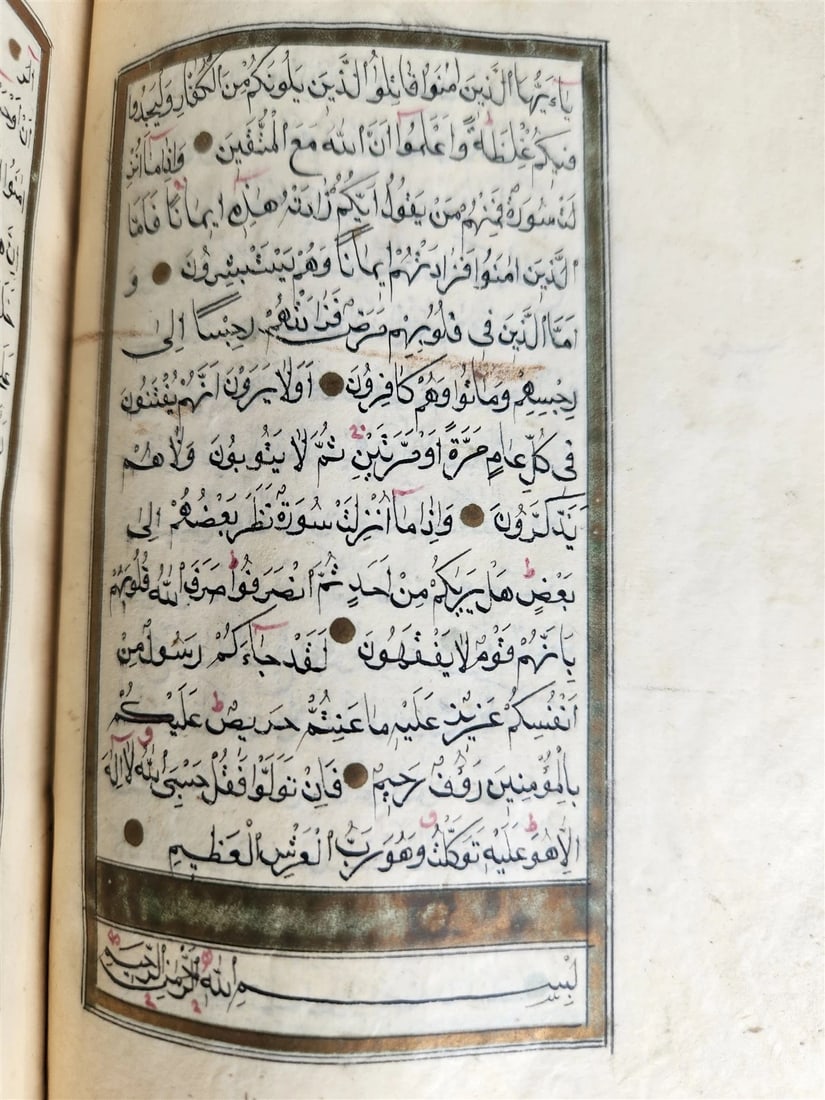 يَاۤءَيُّهَا الَّذِينَ اٰمَنُوا قَاتِلُوا الَّذِينَ يَلُونَكُمْ مِنَ الْكُفَّارِ وَلْيَجِدُوا
فِيكُمْ غِلْظَةً وَاعْلَمُوا اَنَّ اللّٰهَ مَعَ الْمُتَّقِينَ وَاِذَا مَا اُنْزِ
لَتْ سُورَةٌ فَمِنْهُمْ مَنْ يَقُولُ اَيُّكُمْ زَادَتْهُ هٰذِهِ اِيمَانًا فَاَمَّا
الَّذِينَ اٰمَنُوا فَزَادَتْهُمْ اِيمَانًا وَهُمْ يَسْتَبْشِرُونَ وَ
اَمَّا الَّذِينَ فِى قُلُوبِهِمْ مَرَضٌ فَزَادَتْهُمْ رِجْسًا اِلٰى
رِجْسِهِمْ وَمَاتُوا وَهُمْ كَافِرُونَ اَوَلَا يَرَوْنَ اَنَّهُمْ يُفْتَنُونَ
فِى كُلِّ عَامٍ مَرَّةً اَوْ مَرَّتَيْنِ ثُمَّ لَا يَتُوبُونَ وَلَا هُمْ
يَذَّكَّرُونَ وَاِذَا مَا اُنْزِلَتْ سُورَةٌ نَظَرَ بَعْضُهُمْ اِلٰى
بَعْضٍ هَلْ يَرٰيكُمْ مِنْ اَحَدٍ ثُمَّ انْصَرَفُوا صَرَفَ اللّٰهُ قُلُوبَهُمْ
بِاَنَّهُمْ قَوْمٌ لَا يَفْقَهُونَ لَقَدْ جَاۤءَكُمْ رَسُولٌ مِنْ
اَنْفُسِكُمْ عَزِيزٌ عَلَيْهِ مَا عَنِتُّمْ حَرِيصٌ عَلَيْكُمْ
بِالْمُؤْمِنِينَ رَؤُفٌ رَحِيمٌ فَاِنْ تَوَلَّوْا فَقُلْ حَسْبِىَ اللّٰهُ لَا اِلٰهَ
اِلَّا هُوَ عَلَيْهِ تَوَكَّلْتُ وَهُوَ رَبُّ الْعَرْشِ الْعَظِيمِ
بِسْمِ اللّٰهِ الرَّحْمٰنِ الرَّحِيمِ